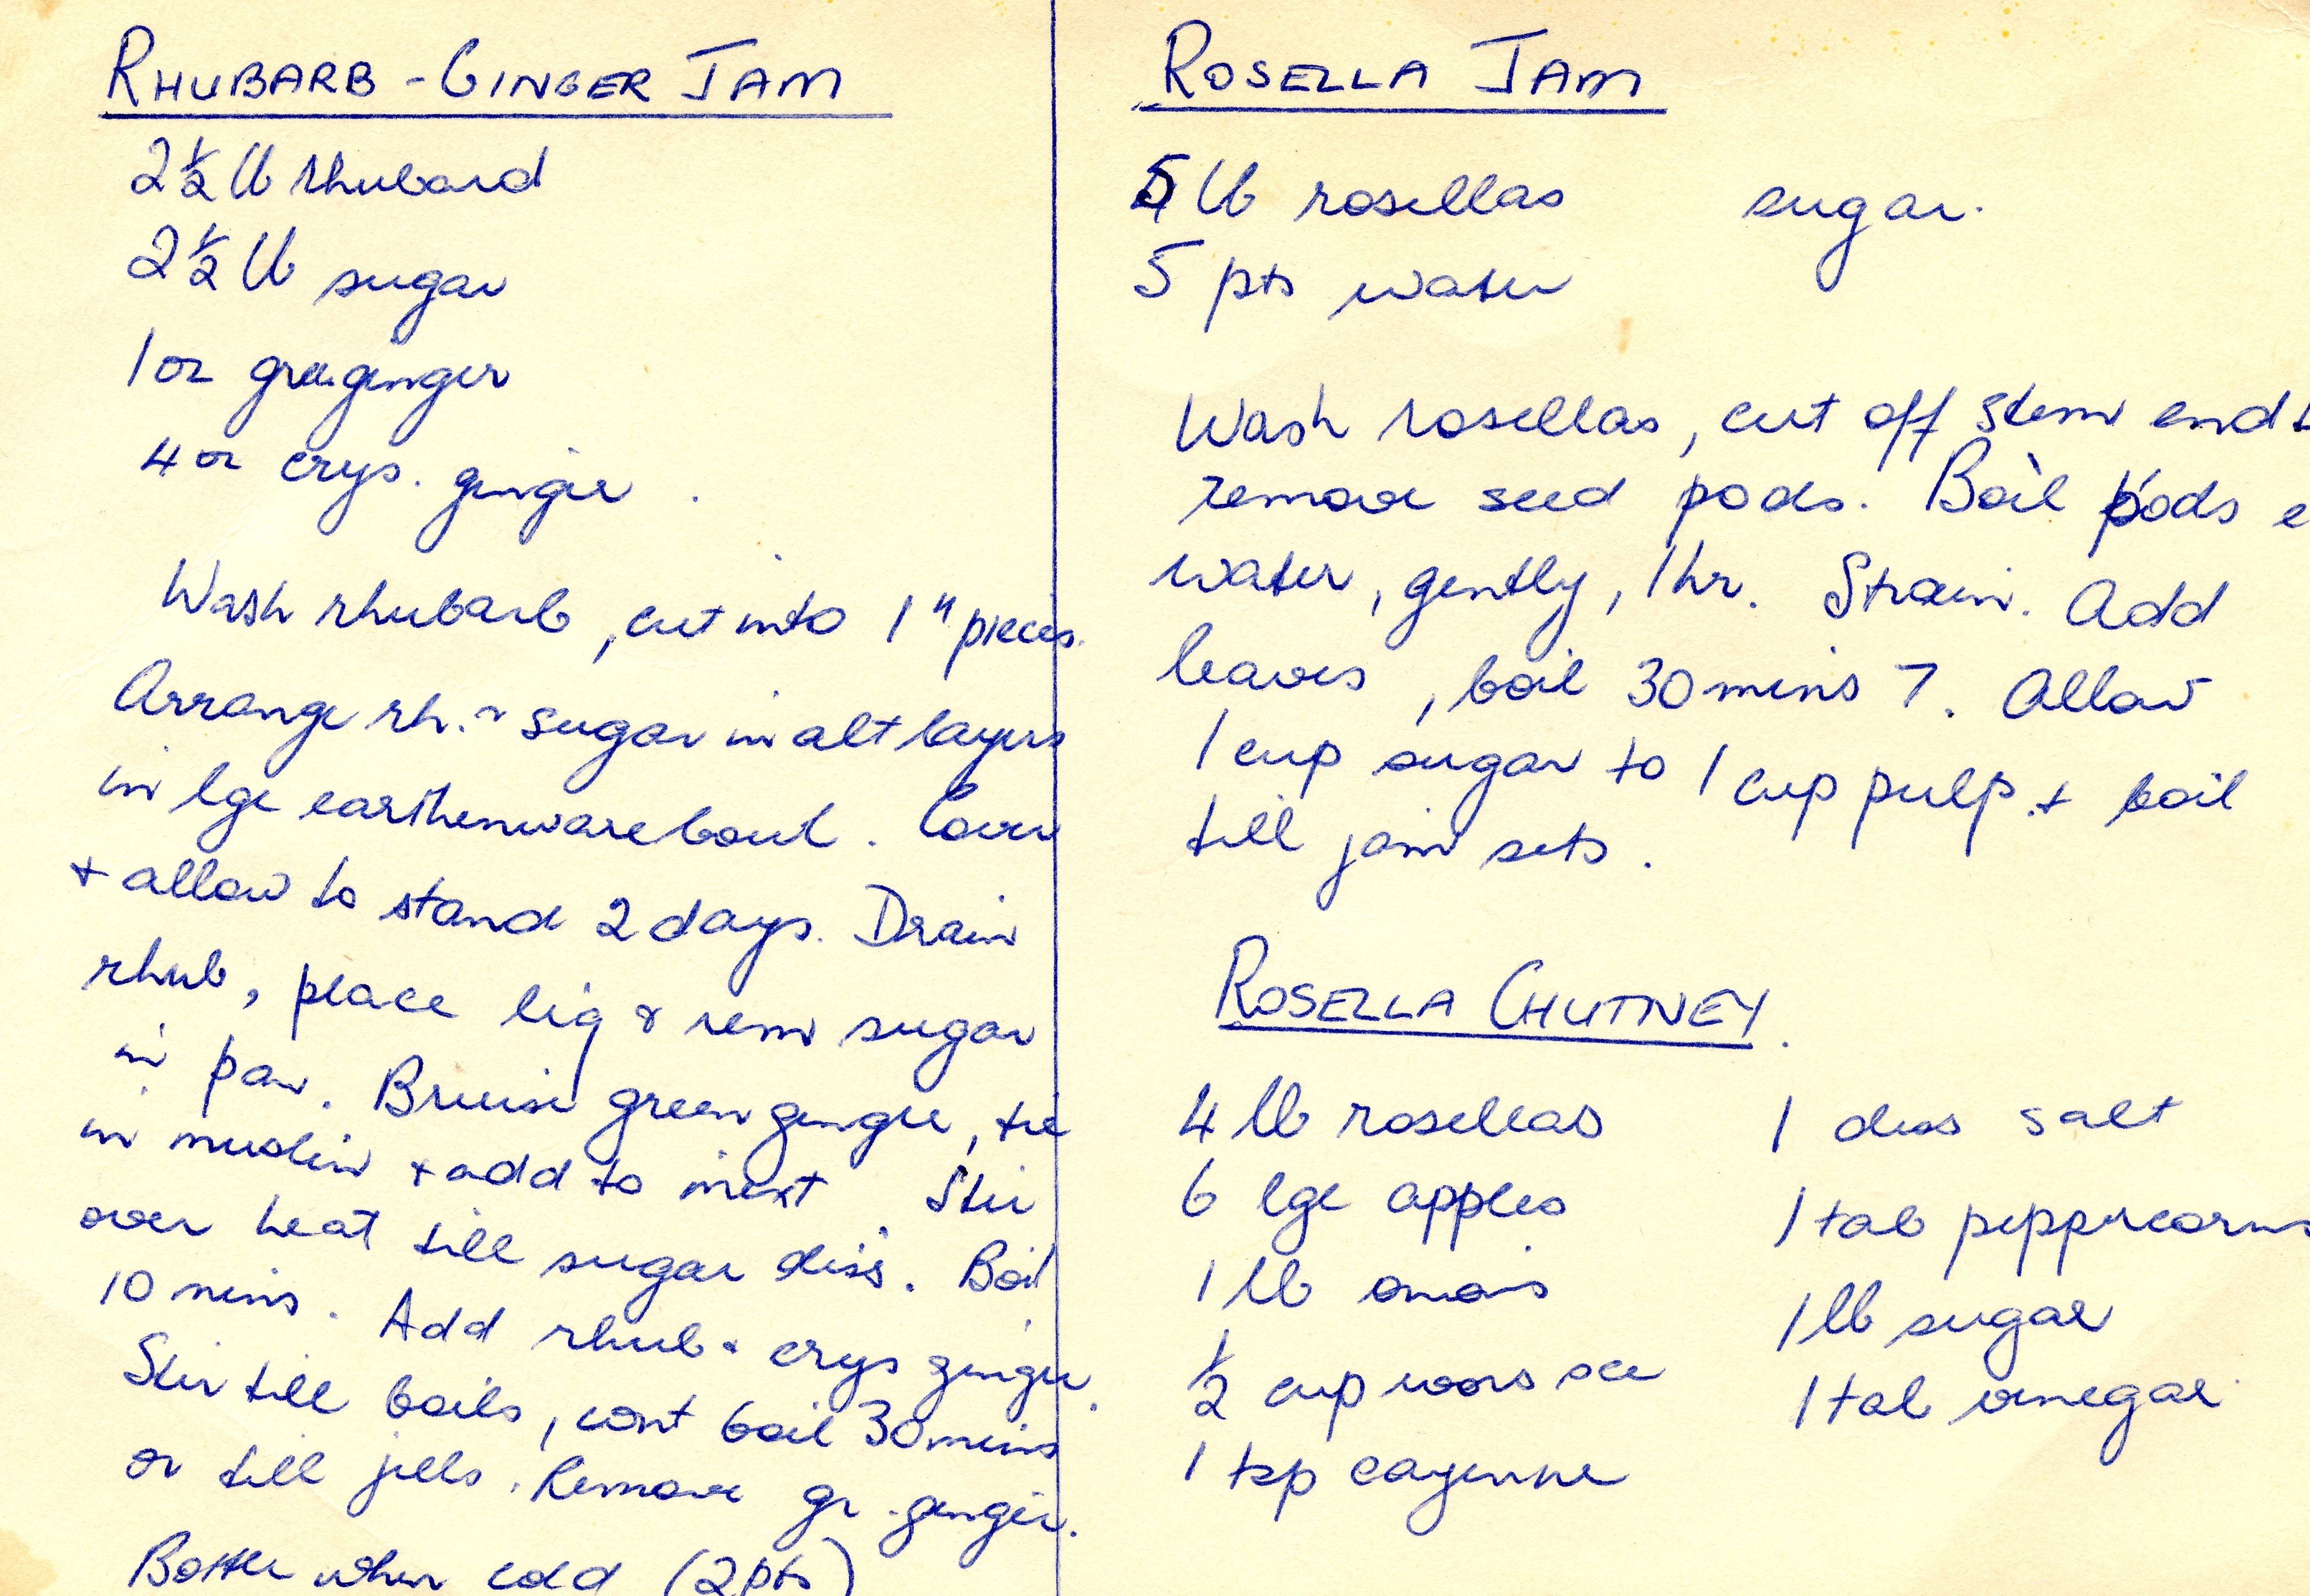 RHUBARB - GINGER JAM
2½ lb rhubard
2½ lb sugar
1 oz gre. ginger
4 oz crys. ginger.
Wash rhubarb, cut into 1" pieces.
Arrange rh. & sugar in alt layers
in lge earthenware bowl. Cover
+ allow to stand 2 days. Drain
rhub, place liq & rem sugar
in pan. Bruise green ginger, tie
in muslin + add to mixt. Stir
over heat till sugar diss. Boil
10 mins. Add rhub & crys ginger.
Stir till boils, cont boil 30 mins
or till jells. Remove gr. ginger.
Bottle when cold (2 pts)
ROSELLA JAM
5 lb rosellas sugar.
5 pts water
Wash rosellas, cut off stem end +
remove seed pods. Boil pods
water, gently, 1 hr. Strain. Add
leaves, boil 30 mins 7. Allow
1 cup sugar to 1 cup pulp + boil
till jam sets.
ROSELLA CHUTNEY.
4 lb rosellas 1 dess salt
6 lge apples 1 tab peppercorns
1 lb onions 1 lb sugar
½ cup wors sce 1 tab vinegar
1 tsp cayenne